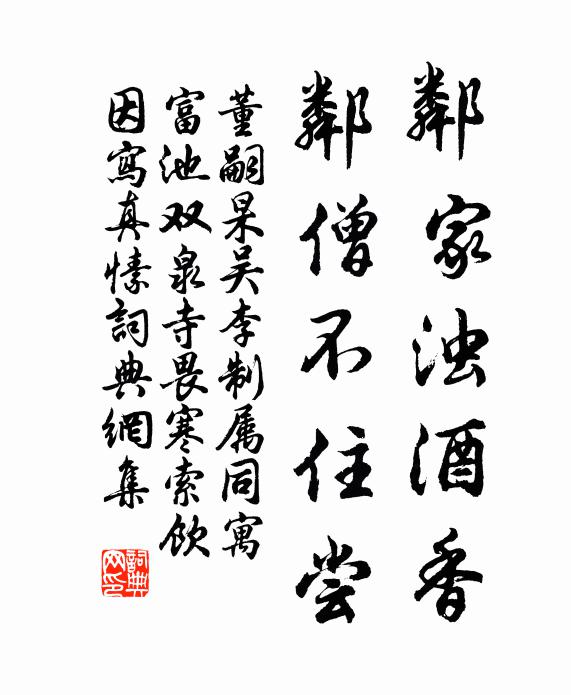 鄰家浊酒香
鄰僧不住尝
董嗣杲吴李制属同寓
富池双泉寺畏寒索饮
因寫真愫詞典網集
詞典网印